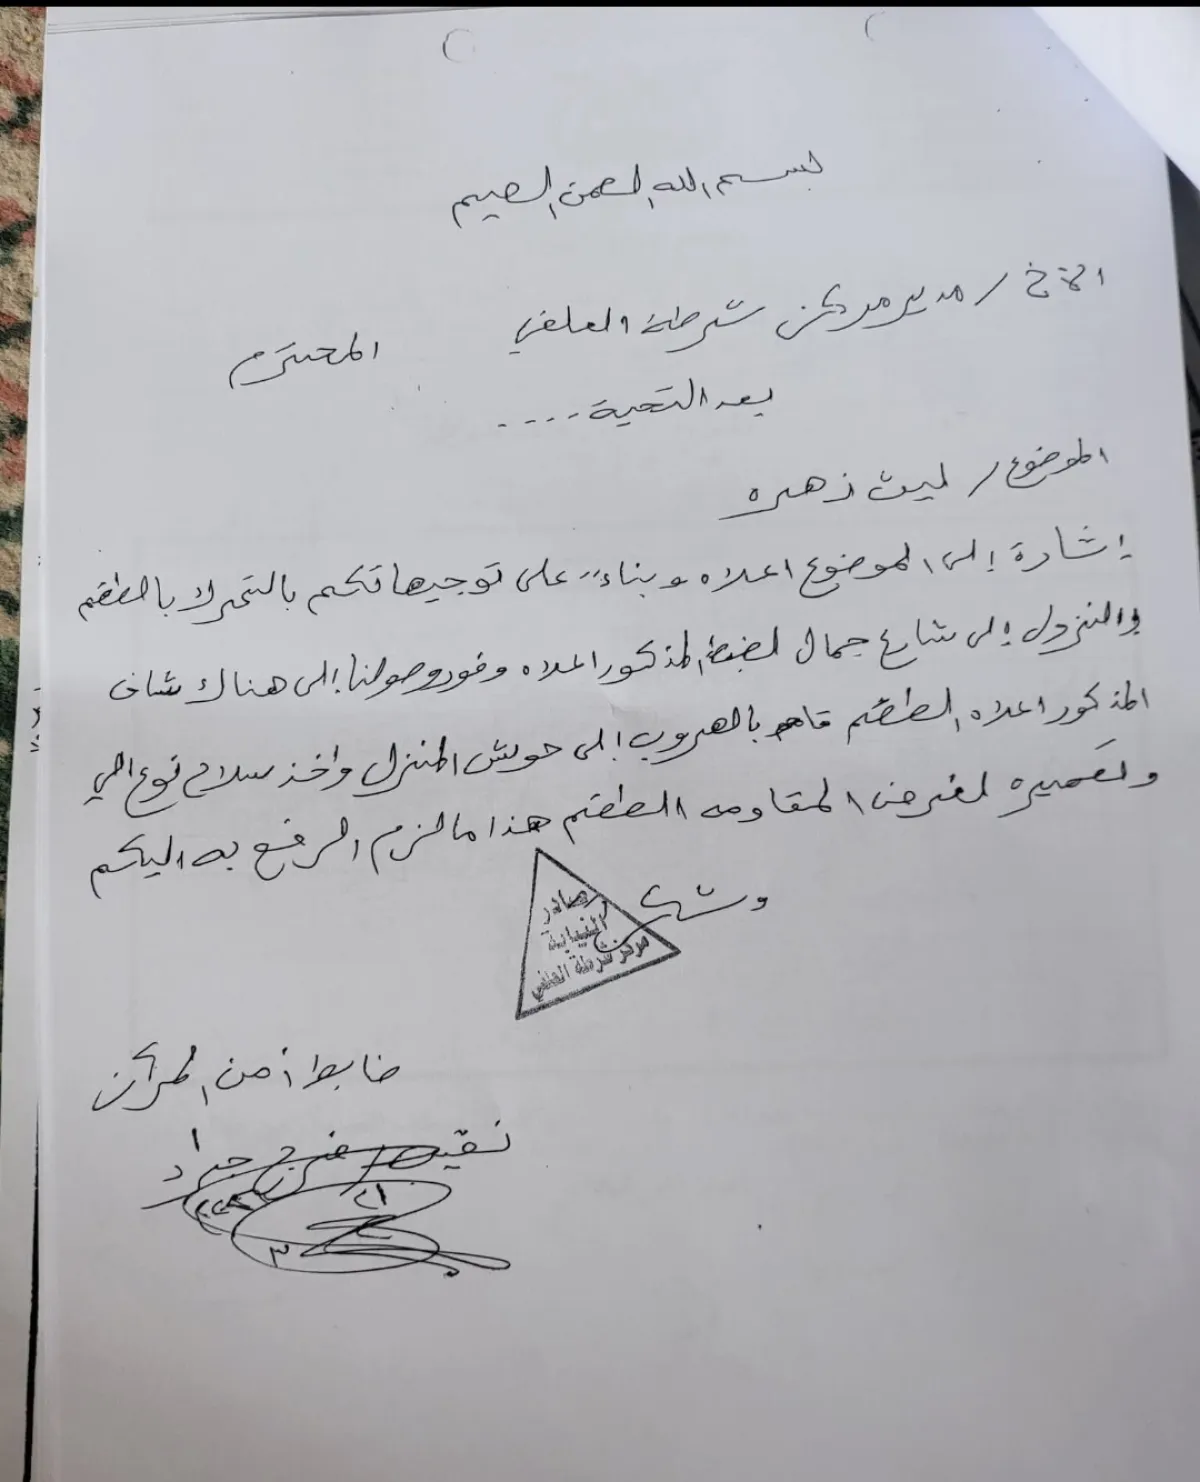 بسم الله الرحمن الرحيم
الاخ / مدير مركز شرطة العلفي المحترم
بعد التحية ....
الموضوع / ليث زهره
إشارة إلى الموضوع اعلاه وبناءً على توجيهاتكم بالتحرك بالطقم
والنزول إلى شارع جمال لضبط المذكور اعلاه وفور وصولنا إلى هناك شاف
المذكور اعلاه الطقم قام بالهروب إلى حوش المنزل واخذ سلاح نوع الي
وتعميره لغرض المقاومه الطقم هذا مالزم الرفع به اليكم
وشكرا
صادر
النيابة
مركز شرطة العلفي
ضابط أمن المركز
نقيب / جراد